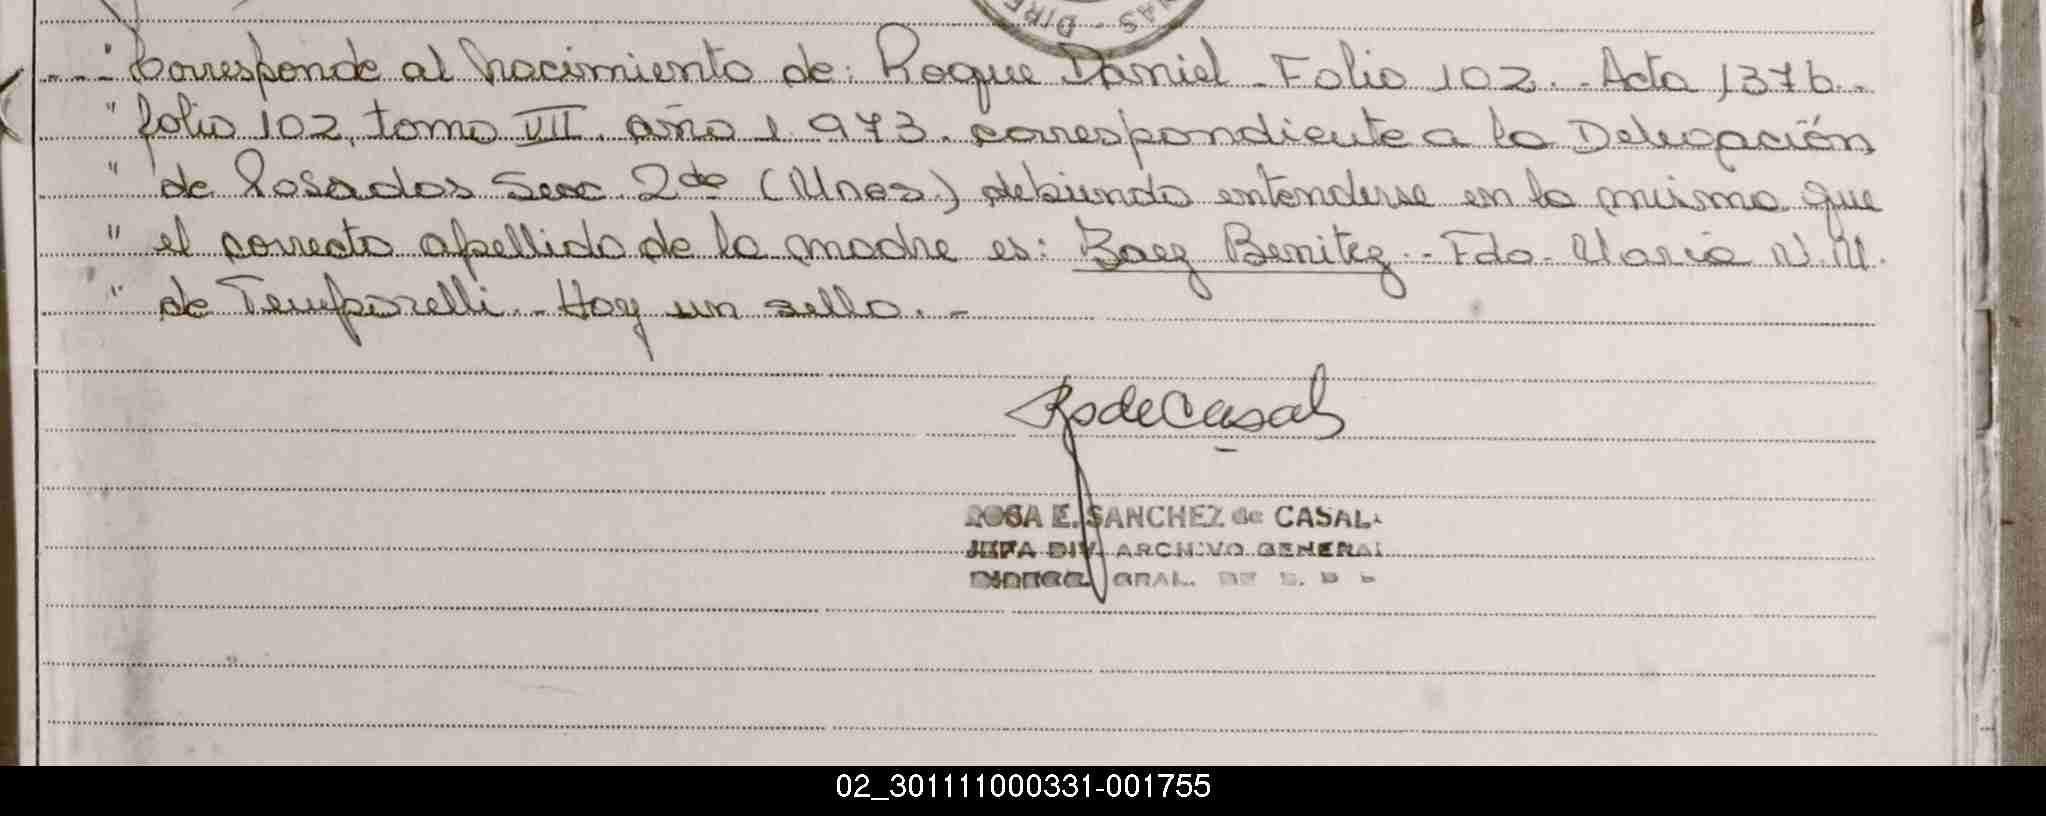 DIRE NAS -
- - " Corresponde al Nacimiento de: Roque Daniel - Folio 102. - Acta 1376. -
" folio 102, tomo VII. año 1.973. correspondiente a la Delegación
" de Posadas Secc 2da (Mnes) debiendo entenderse en la misma que
" el correcto apellido de la madre es: Baez Benitez. - Fdo. María N. M.
" de Temporelli. - Hay un sello. -
RSdeCasal
ROSA E. SANCHEZ de CASAL
JEFA DIV. ARCHIVO GENERAL
GRAL. DE
02_301111000331-001755